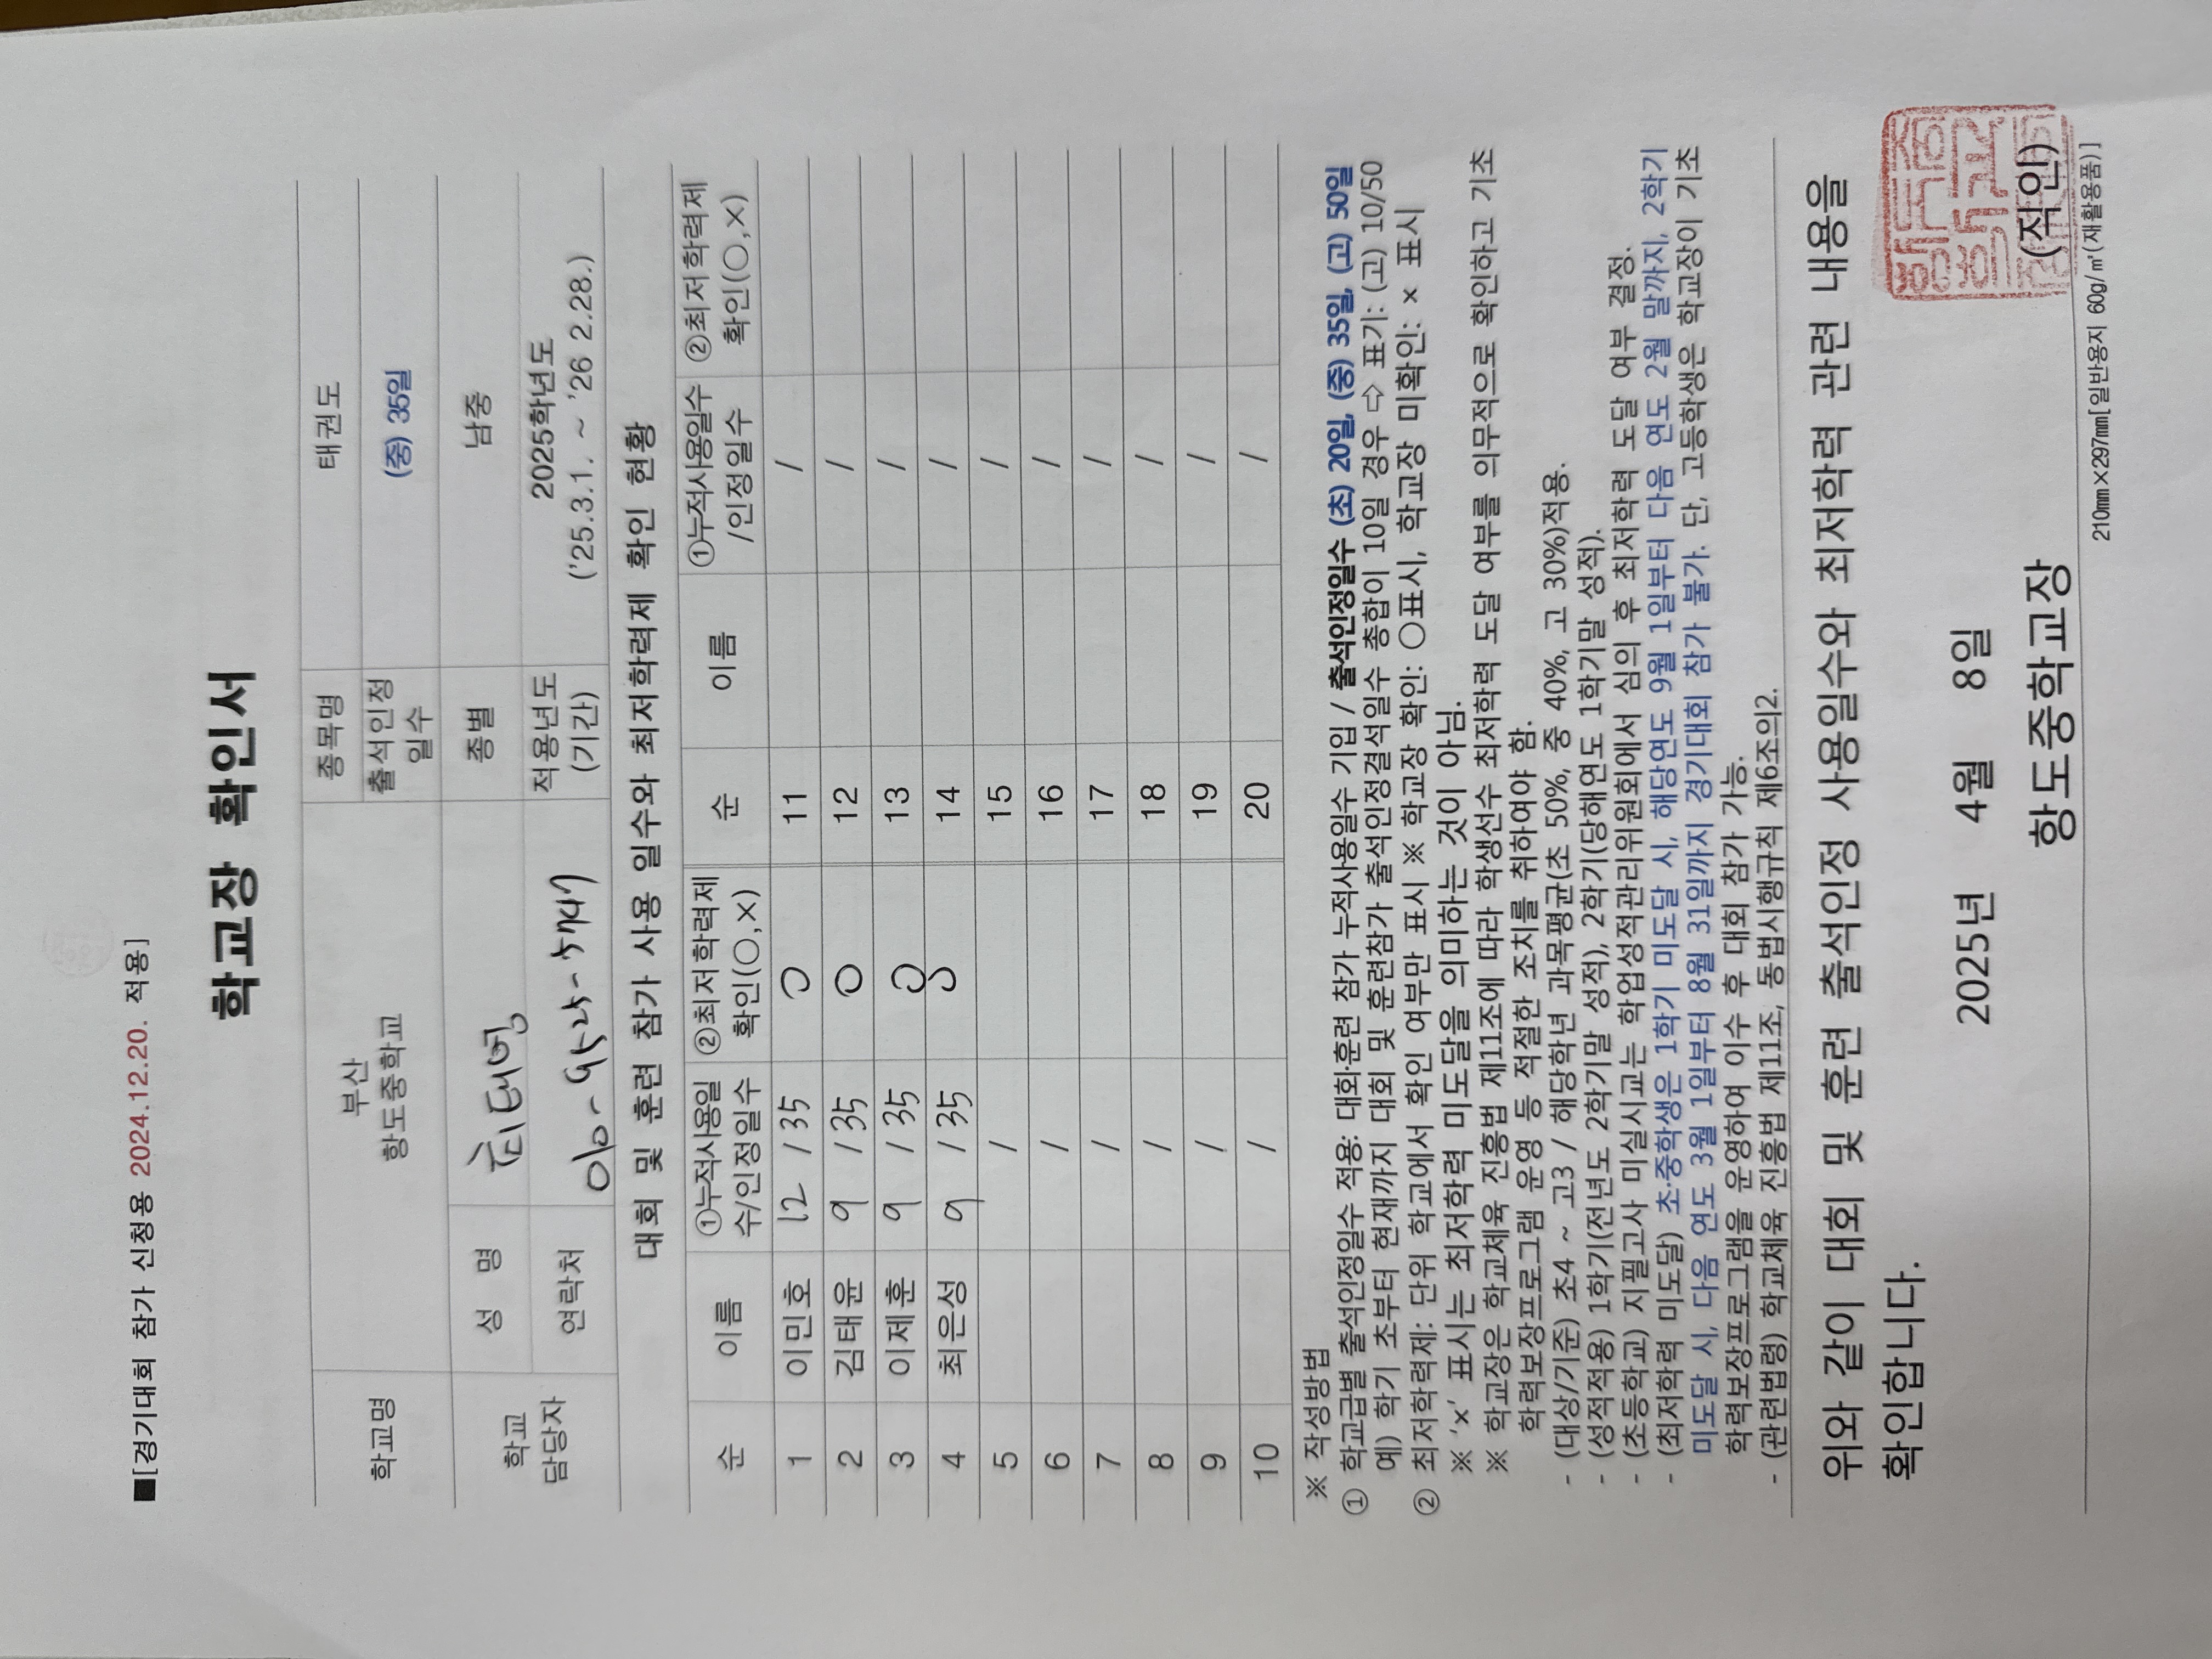 ■[경기대회 참가 신청용 2024.12.20. 적용]
학교장 확인서
학교명 부산 항도중학교 종목명 태권도
출석인정 일수 (중) 35일
학교 담당자 성 명 종별 남중
연락처 적용년도 (기간) 2025학년도 ('25.3.1. ~ '26 2.28.)
대회 및 훈련 참가 사용 일수와 최저학력제 확인 현황
순 이름 ①누적사용일수/인정일수 ②최저학력제 확인(○,×) 순 이름 ①누적사용일수/인정일수 ②최저학력제 확인(○,×)
1 이민호 12 / 35 ○ 11 /
2 김태윤 9 / 35 ○ 12 /
3 이제훈 9 / 35 ○ 13 /
4 최은성 9 / 35 ○ 14 /
5 / 15 /
6 / 16 /
7 / 17 /
8 / 18 /
9 / 19 /
10 / 20 /
※ 작성방법
① 학교급별 출석인정일수 적용: 대회·훈련 참가 누적사용일수 기입 / 출석인정일수 (초) 20일, (중) 35일, (고) 50일
예) 학기 초부터 현재까지 대회 및 훈련참가 출석인정결석일수 총합이 10일 경우 ⇨ 표기: (고) 10/50
② 최저학력제: 단위 학교에서 확인 여부만 표시 ※ 학교장 확인: ○표시, 학교장 미확인: × 표시
※ '×' 표시는 최저학력 미도달을 의미하는 것이 아님.
※ 학교장은 학교체육 진흥법 제11조에 따라 학생선수 최저학력 도달 여부를 의무적으로 확인하고 기초
학력보장프로그램 운영 등 적절한 조치를 취하여야 함.
- (대상/기준) 초4 ~ 고3 / 해당학년 과목평균(초 50%, 중 40%, 고 30%)적용.
- (성적적용) 1학기(전년도 2학기말 성적), 2학기(당해연도 1학기말 성적).
- (초등학교) 지필고사 미실시교는 학업성적관리위원회에서 심의 후 최저학력 도달 여부 결정.
- (최저학력 미도달) 초·중학생은 1학기 미도달 시, 해당연도 9월 1일부터 다음 연도 2월 말까지, 2학기
미도달 시, 다음 연도 3월 1일부터 8월 31일까지 경기대회 참가 불가. 단, 고등학생은 학교장이 기초
학력보장프로그램을 운영하여 이수 후 대회 참가 가능.
- (관련법령) 학교체육 진흥법 제11조, 동법시행규칙 제6조의2.
위와 같이 대회 및 훈련 출석인정 사용일수와 최저학력 관련 내용을
확인합니다.
2025년 4월 8일
항도중학교장 (직인)
210㎜×297㎜[일반용지 60g/㎡(재활용품)]